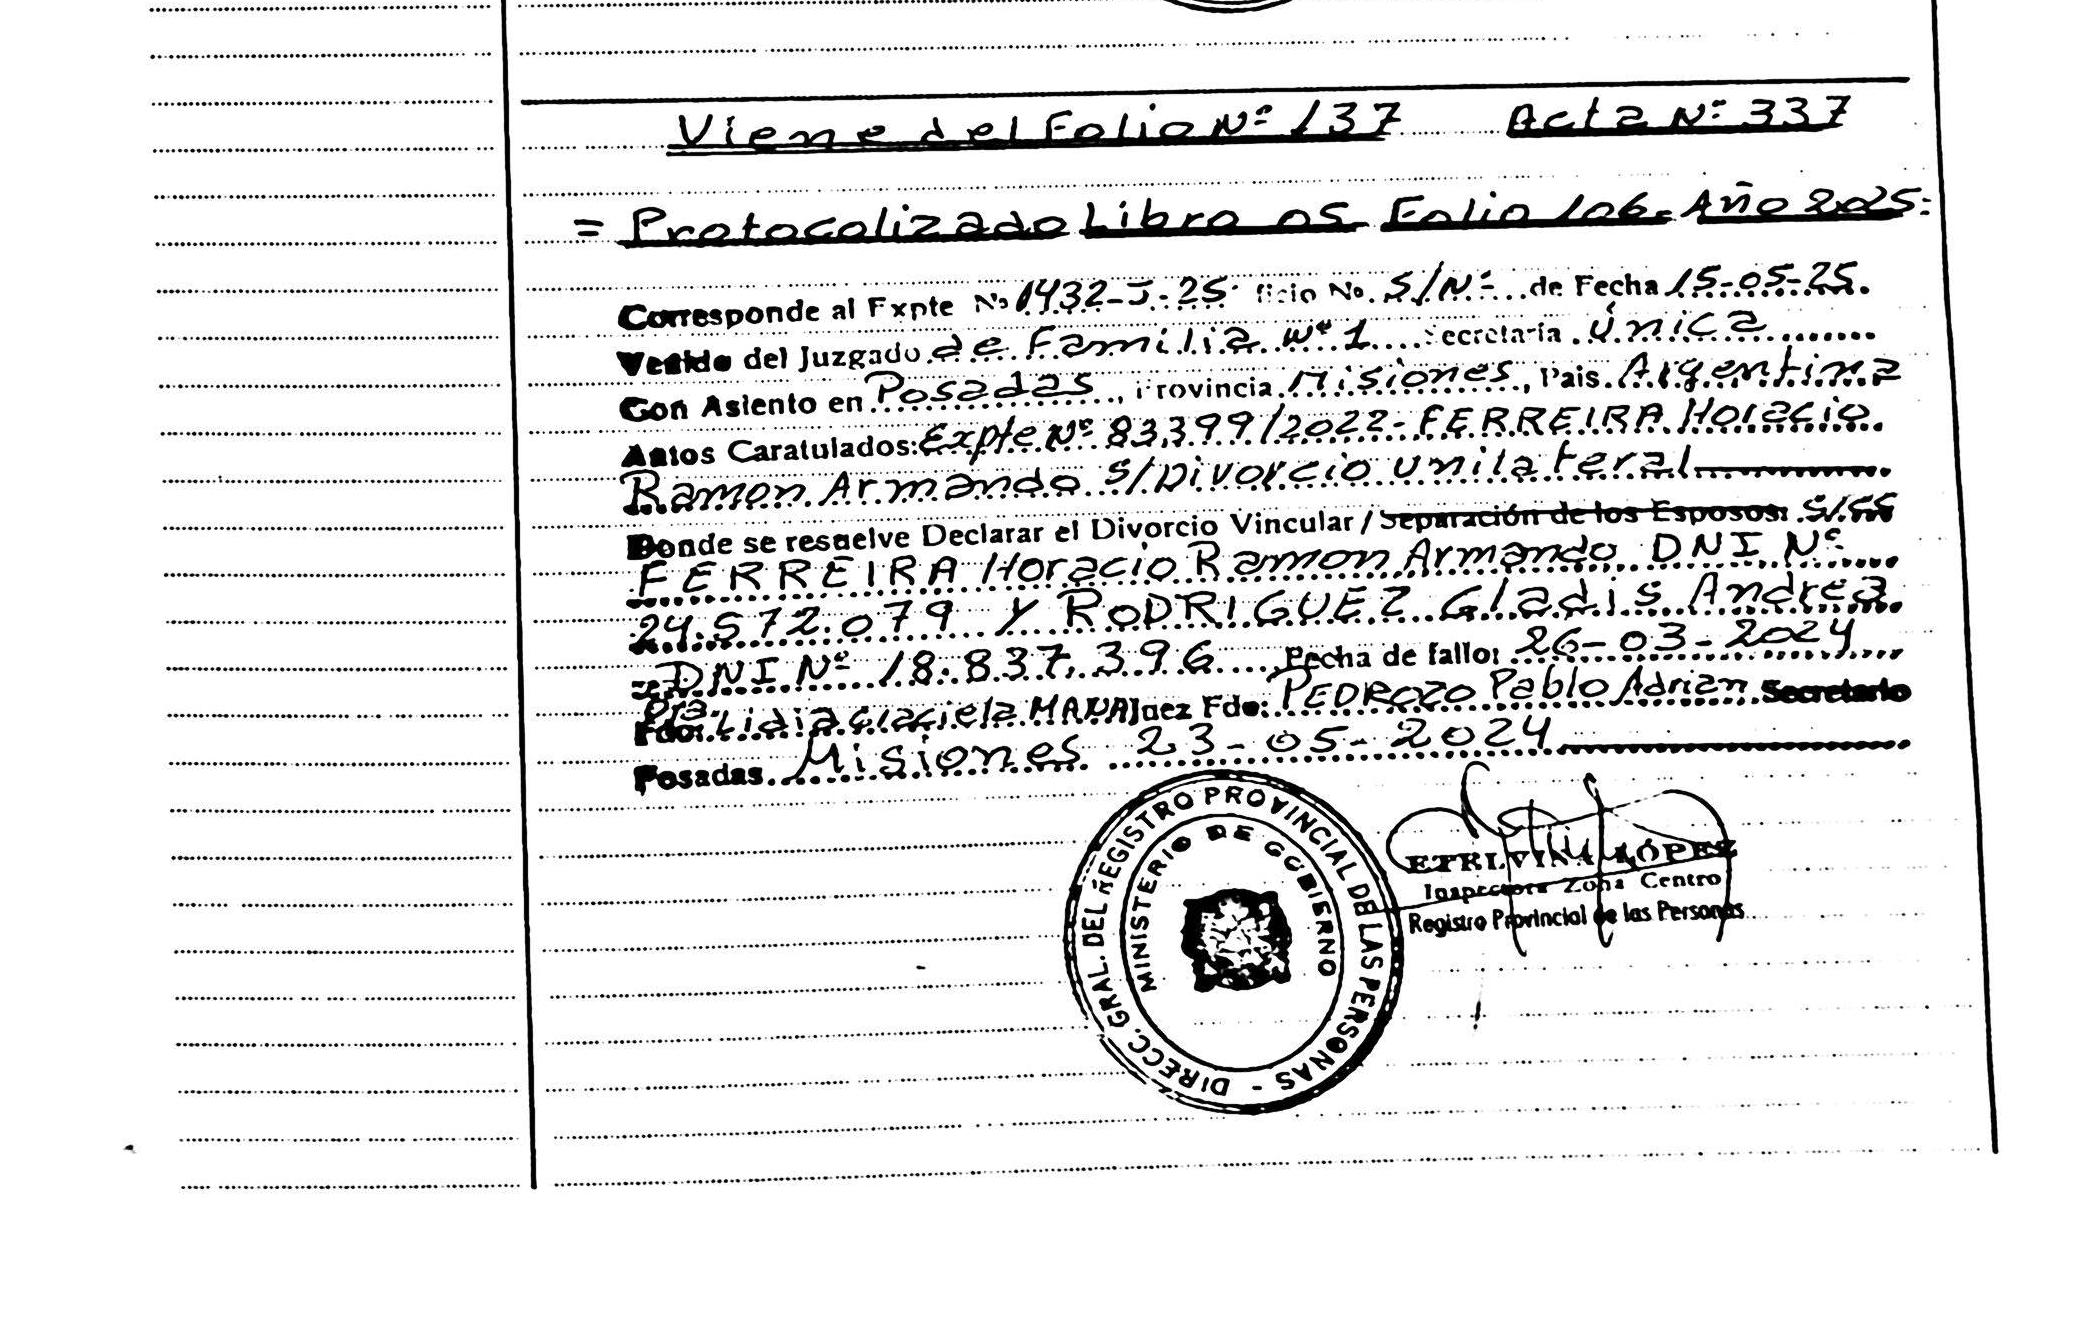 Viene del Folio Nº 137 Acta Nº 337
= Protocolizado Libro 05 Folio 106- Año 2025=
Corresponde al Expte Nº 1432-J-25 ficio No. S/Nº de Fecha 15-05-25.
Venido del Juzgado de Familia Nº 1 Secretaría Única
Con Asiento en Posadas, Provincia Misiones, Pais Argentina
Autos Caratulados: Expte Nº 83399/2022- FERREIRA Horacio
Ramon Armando S/Divorcio unilateral
Donde se resuelve Declarar el Divorcio Vincular / Separación de los Esposos:
FERREIRA Horacio Ramon Armando DNI Nº
24.572.079 y RODRIGUEZ Gladis Andrea
= DNI Nº 18.837.396 Fecha de fallo: 26-03-2024
Dra.
Fdo: Lidia Graciela Juez Fdo: PEDROZO Pablo Adrian Secretario
Posadas Misiones 23-05-2024
DIRECC. GRAL. DEL REGISTRO PROVINCIAL DE LAS PERSONAS -
MINISTERIO DE GOBIERNO
ETELVINA LÓPEZ
Inspectora Zona Centro
Registro Provincial de las Personas